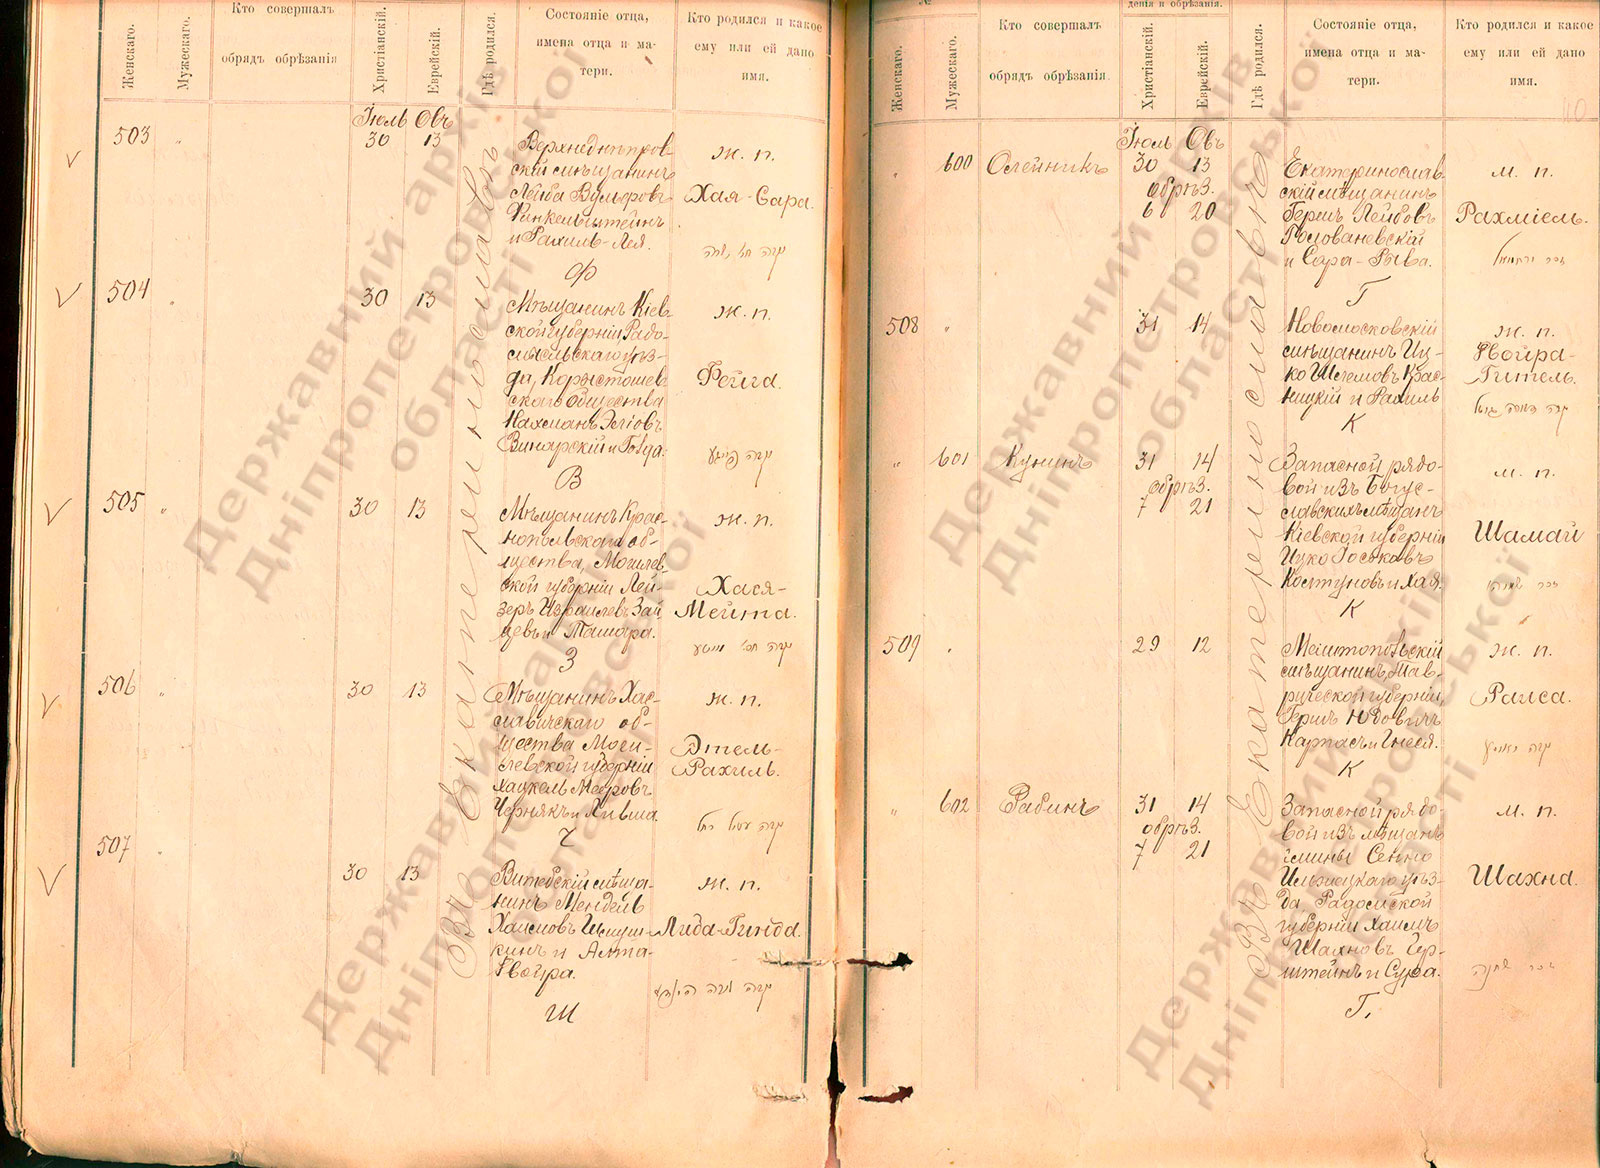 Женскаго.
Мужескаго.
Кто совершалъ
обрядъ обрѣзанія
Христіанскій.
Еврейскій.
Гдѣ родился.
Состояніе отца,
имена отца и ма-
тери.
Кто родился и какое
ему или ей дано
имя.
Въ Екатеринославѣ
Іюль Овъ
503 " 30 13
Верхнеднѣпров-
скій мѣщанинъ
Лейба Вульфовъ
Финкельштейнъ
и Рахиль-Лея.
Ф
ж. п.
Хая-Сара.
504 " 30 13
Мѣщанинъ Кіев-
ской губерніи Радо-
мысльскаго уѣз-
да, Коростошев-
скаго общества
Нахманъ
Винарскій и Голда.
В
ж. п.
Фейга.
505 " 30 13
Мѣщанинъ Крас-
нопольскаго об-
щества, Могилев-
ской губерніи Лей-
зеръ Израилевъ Зай-
цевъ и Тамара.
З
ж. п.
Хася-
Мейта.
506 " 30 13
Мѣщанинъ Хас-
лавичскаго об-
щества Моги-
левской губерніи
Хацкель Мееровъ
Чернякъ и Хивша.
Ч
ж. п.
Этель-
Рахиль.
507 30 13
Витебскій мѣща-
нинъ Мендель
Хаимовъ Шмуш-
кинъ и Алта-
Двойра.
Ш
ж. п.
Лида-Гинда.
№
денія и обрѣзанія.
Женскаго.
Мужескаго.
Кто совершалъ
обрядъ обрѣзанія.
Христіанскій.
Еврейскій.
Гдѣ родился.
Состояніе отца,
имена отца и ма-
тери.
Кто родился и какое
ему или ей дано
имя.
Въ Екатеринославѣ
Іюль Овъ
" 600 Олейникъ 30 13
обрѣз.
6 20
Екатеринослав-
скій мѣщанинъ
Гершъ Лейбовъ
Голованевскій
и Сара-Рыва.
Г
м. п.
Рахміель.
508 " 31 14
Новомосковскій
мѣщанинъ Иц-
ко Шлемовъ Крас-
ницкій и Рахиль
К
ж. п.
Двойра-
Гитель.
" 601 Кунинъ 31 14
обрѣз.
7 21
Запасной рядо-
вой изъ Богус-
лавскихъ мѣщанъ
Кіевской губерніи
Ицко Іоськовъ
Колтуновъ и Хая.
К
м. п.
Шамай
509 " 29 12
Мелитопольскій
мѣщанинъ, Тав-
рической губерніи,
Гершъ Юдовичъ
Карпасъ и Гнеся.
К
ж. п.
Раиса.
" 602 Рабинъ 31 14
обрѣз.
7 21
Запасной рядо-
вой изъ мѣщанъ
гмины Сенно
Ильжецкаго уѣз-
да Радомской
губерніи Хаимъ
Шахновъ Гер-
штейнъ и Сура.
Г.
м. п.
Шахна.
Державний архів
Дніпропетровської
області